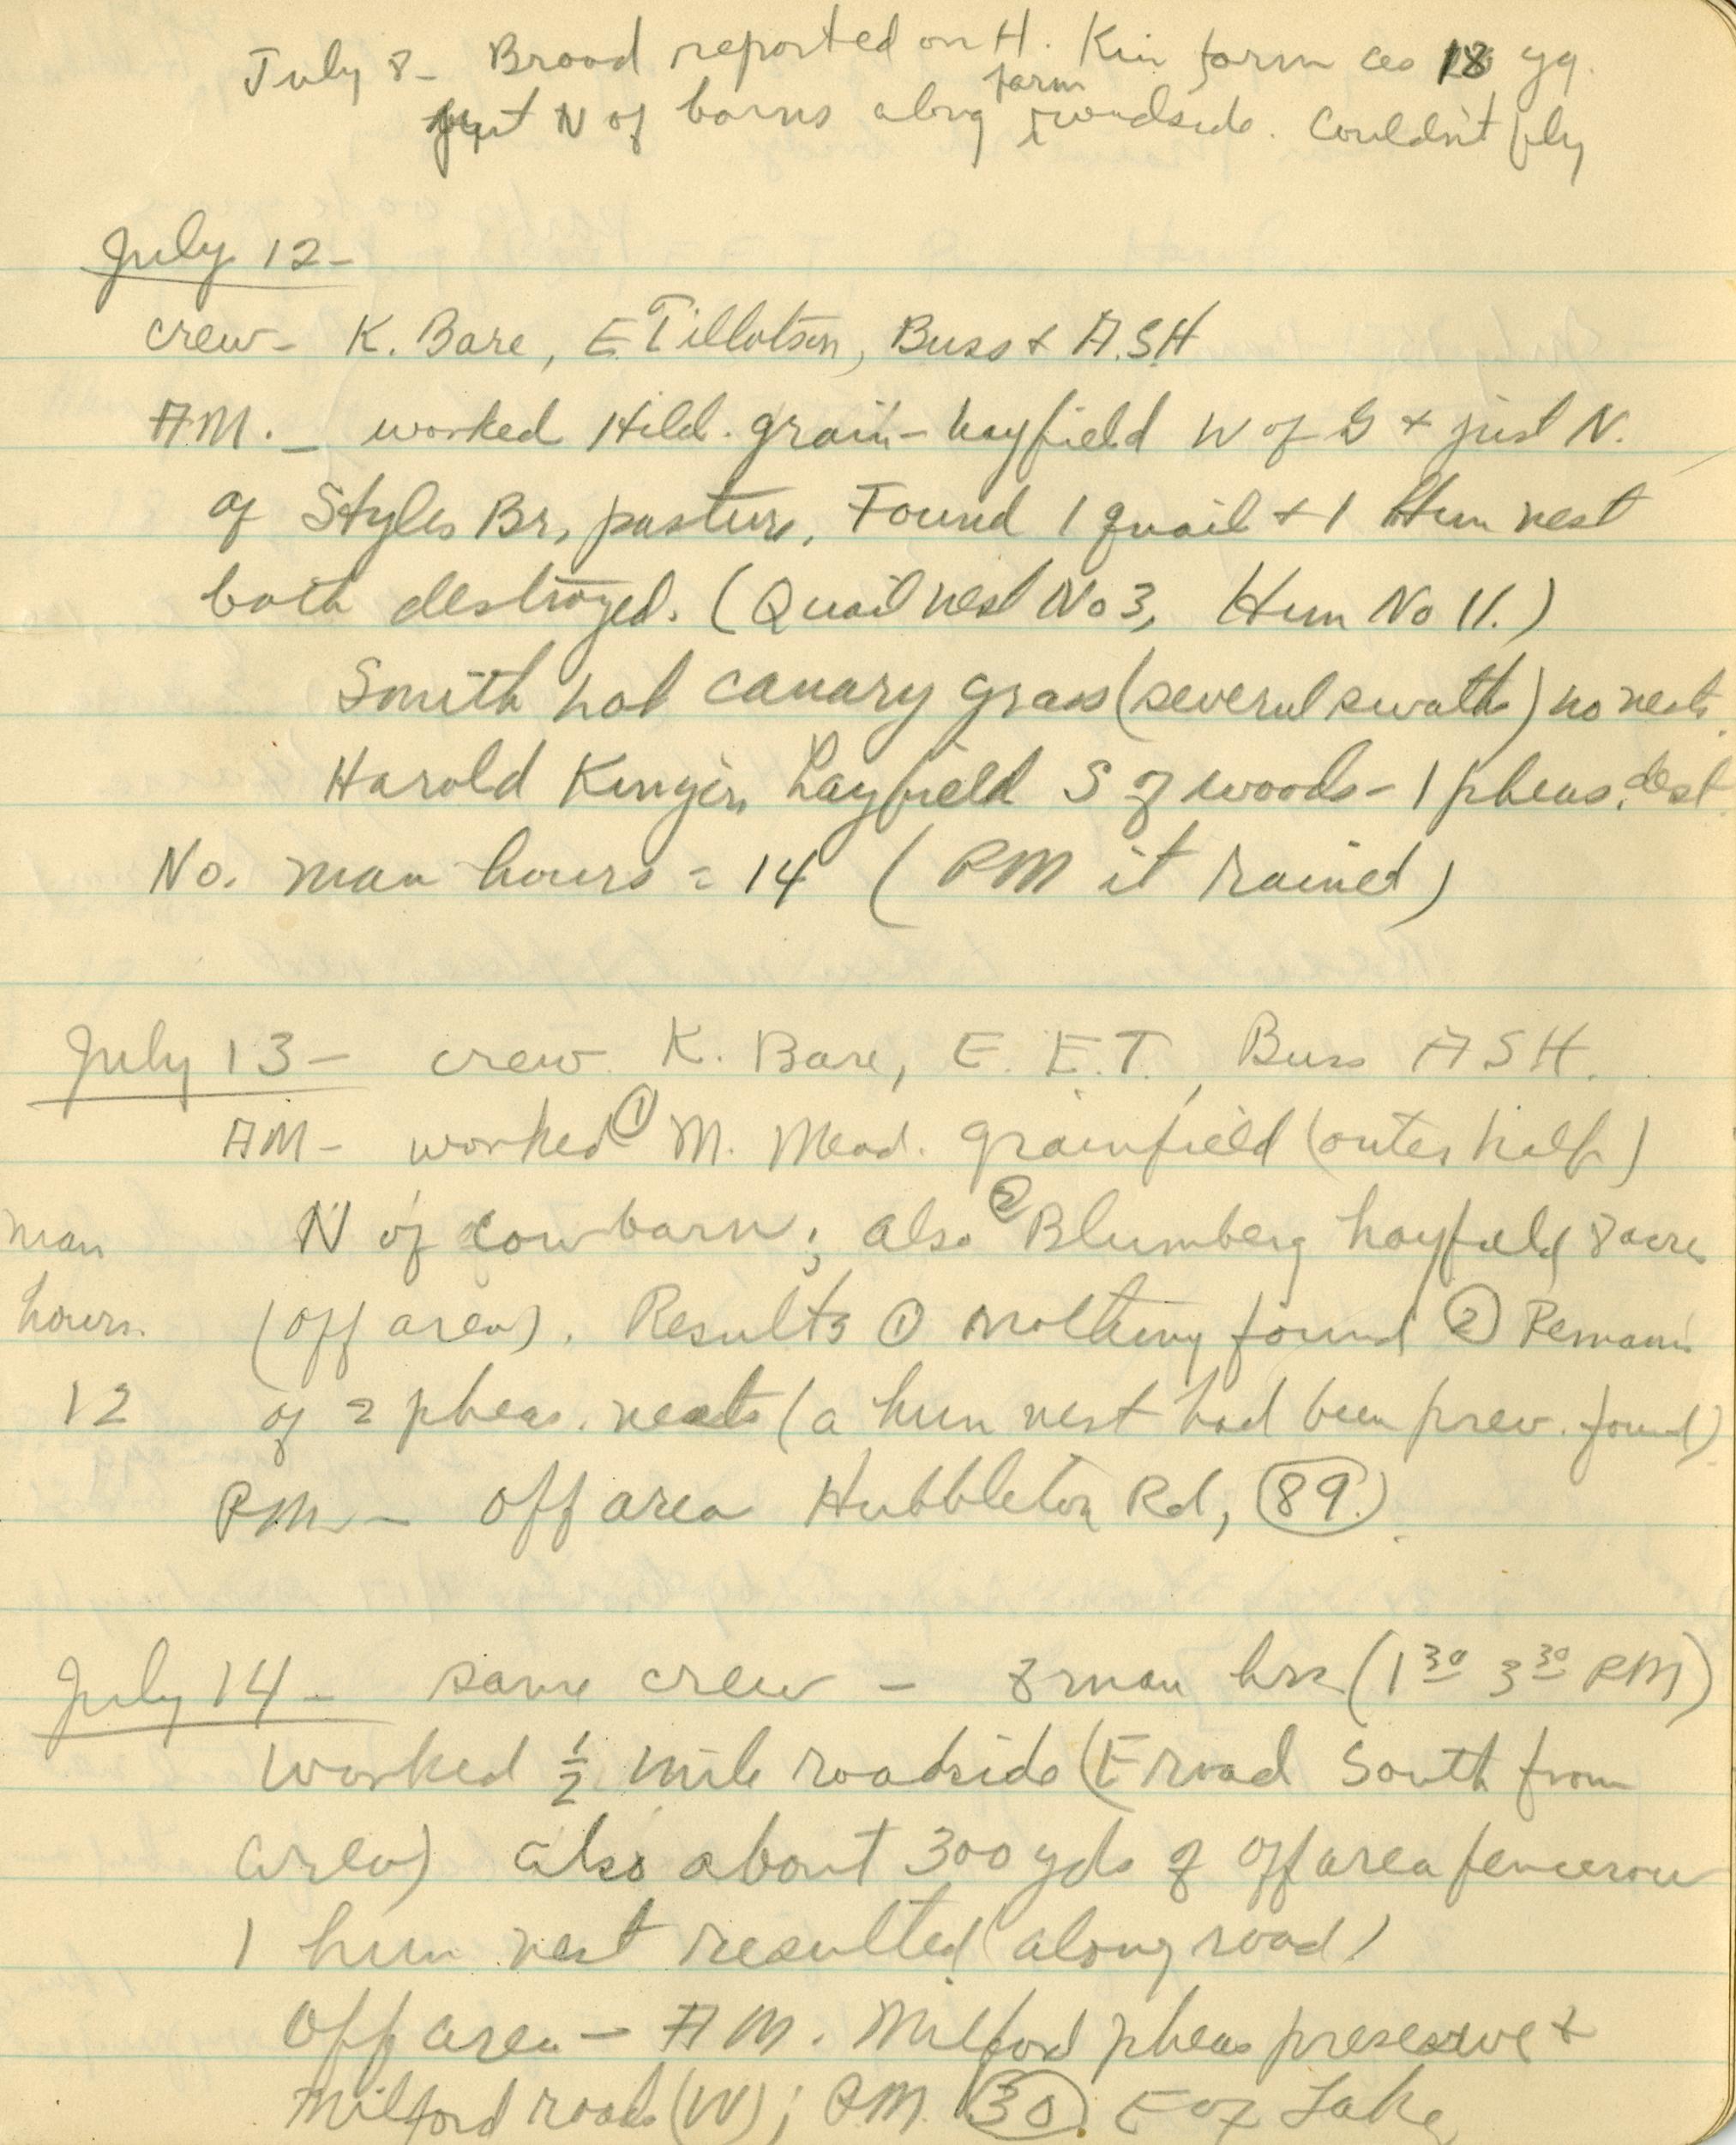 July 8 - Brood reported on H. Kin farm ca 18 yg.
just N of barns along farm roadside. Couldn't fly
July 12 -
crew - K. Bare, E. Tillotson, Buss + A.S.H
A.M. - worked Hild. grain - hayfield W of G + just N.
of Styles Br. pasture. Found 1 quail + 1 Hun nest
both destroyed. (Quail nest No 3, Hun No 11.)
Smith canary grass (several swaths) no nests.
Harold Kingin hayfield S of woods - 1 pheas. dest
No. man hours = 14 (PM it rained)
July 13 - crew K. Bare, E. E. T., Buss A S H.
AM - worked ① M. Mead. grainfield (outer half)
man N of cow barn; also ② Blumberg hayfield 8 acre
hours. (off area). Results ① nothing found ② Remains
12 of 2 pheas. nests (a hun nest had been prev. found)
PM - off area Hubbleton Rd, 89.
July 14 - same crew - 8 man hrs (1 30 3 30 PM)
Worked 1/2 mile roadside (E road South from
area) also about 300 yds of off area fencerow
1 hun nest resulted (along road)
Off area - A M. Milford pheas preserve +
Milford roads (W); P.M. 30. E of Lake